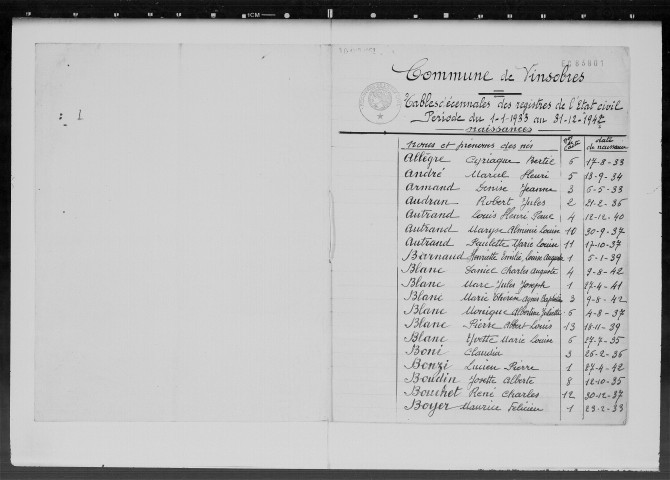 Commune de Vinsobres
Tables décennales des registres de l'Etat civil
Période du 1-1-1933 au 31-12-1942
naissances
Noms et prénoms des nés date de naissance
Allègre Cyriaque Bertie 6 17-8-33
André Marcel Henri 5 13-9-34
Armand Denise Jeanne 3 5-5-33
Audran Robert Jules 2 21-2-36
Autrand Louis Henri Paul 4 12-12-40
Autrand Maryse Louise 10 30-9-37
Autrand Paulette Marie Louise 11 17-10-37
Barnaud Henriette Emilie Louise Augusta 1 5-1-39
Blanc Daniel Charles Auguste 4 9-8-42
Blanc Marc Jules Joseph 1 27-4-41
Blanc Marie Thérèse Agnès 3 9-8-42
Blanc Monique Albertine Juliette 6 4-8-37
Blanc Pierre Albert Louis 13 18-11-39
Blanc Yvette Marie Louise 6 27-7-35
Boni Claudin 3 25-2-36
Bonzi Lucien Pierre 1 27-4-42
Boudin Josette Alberte 8 12-10-35
Bouchet René Charles 12 30-12-37
Boyer Maurice Félicien 1 23-2-33